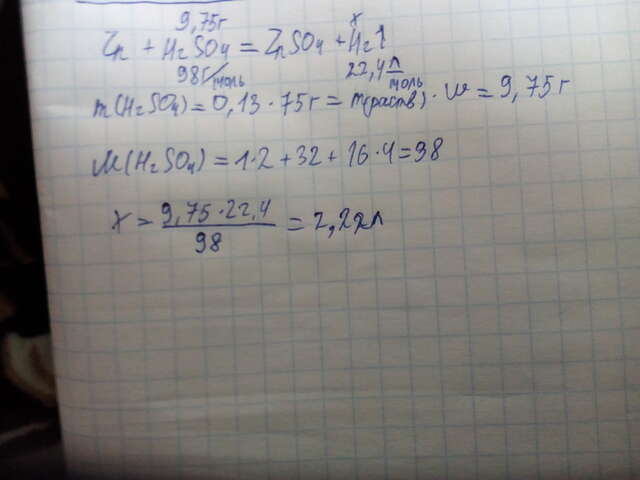 9,75г x
Zn + H2SO4 = ZnSO4 + H2↑
98г/моль 22,4 л/моль
m(H2SO4) = 0,13 · 75г = m(раств) · w = 9,75г
M(H2SO4) = 1·2 + 32 + 16·4 = 98
x = 9,75·22,4 / 98 = 2,22л